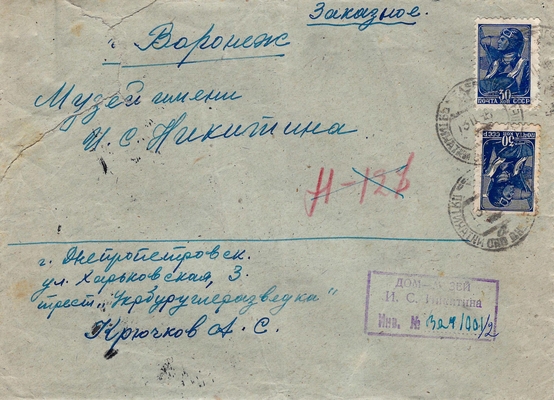 Заказное.
г. Воронеж
Музей имени
И. С. Никитина
Н-123
г. Днепропетровск.
ул. Харьковская, 3
трест „Укрбуруглеразведка"
Крючков А. С.
30
ПОЧТА КОП СССР
30
ПОЧТА КОП СССР
ДОМ-МУЗЕЙ
И. С. Никитина
Инв. №